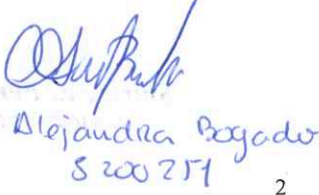 Alejandra Bogado
5200251
2